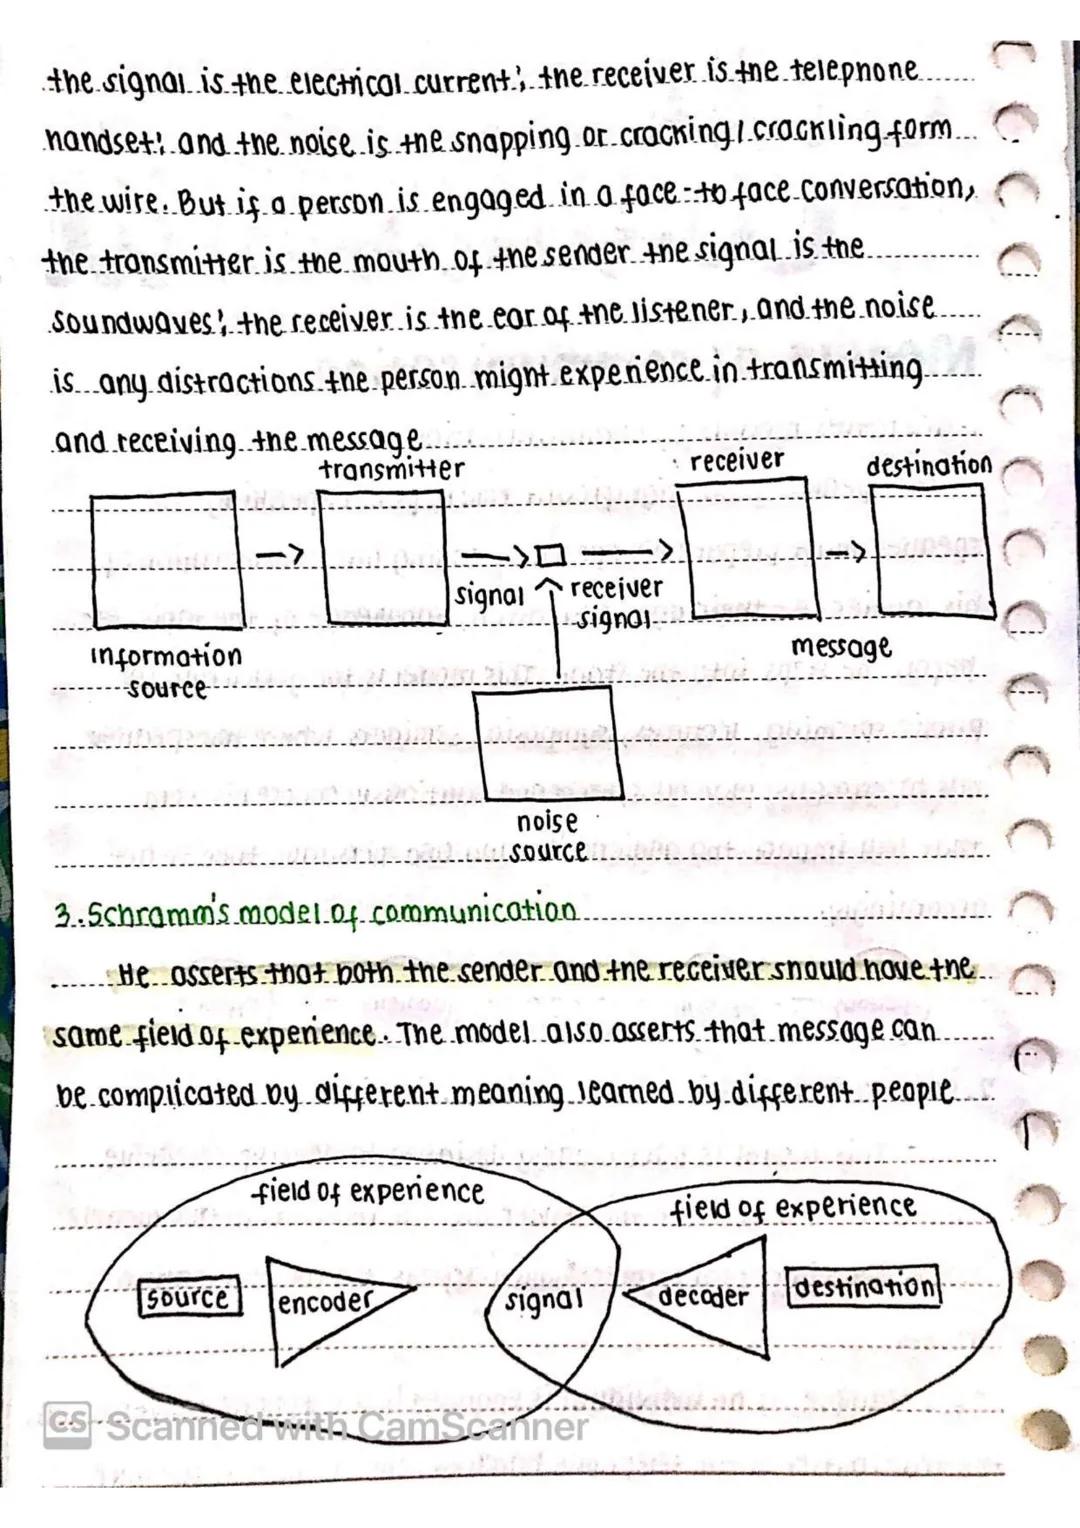 the signal is the electrical current; the receiver is the telephone
handset; and the noise is the snapping or cracking / crackling form
the wire. But if a person is engaged in a face-to face conversation,
the transmitter is the mouth of the sender the signal is the
soundwaves; the receiver is the ear of the listener, and the noise
is any distractions the person might experience in transmitting
and receiving the message
transmitter
receiver
destination
signal
receiver
signal
information
source
message
noise
source
3. Schramm's model of communication
He asserts that both the sender and the receiver should have the
same field of experience. The model also asserts that message can
be complicated by different meaning learned by different people
field of experience
field of experience
source
encoder
signal
decoder
destination
CS Scanned with CamScanner